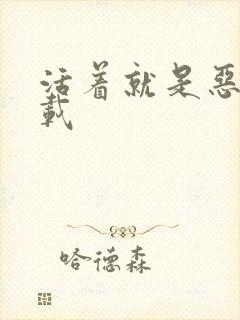 活着就是恶
载
哈德森